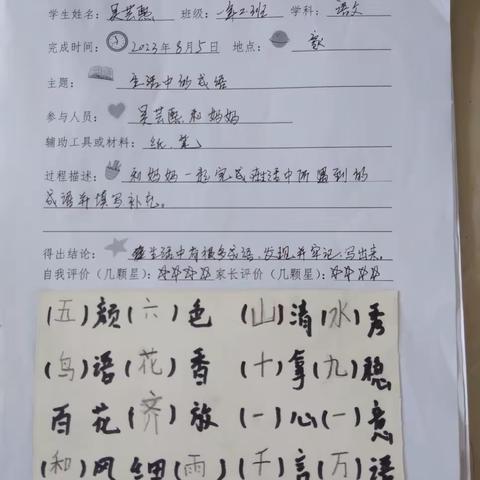 学生姓名：吴芸熙 班级：一年二班 学科：语文
完成时间：2023年8月5日 地点：家
主题：生活中的成语
参与人员：吴芸熙和妈妈
辅助工具或材料：纸、笔
过程描述：和妈妈一起完成生活中所遇到的
成语并填写补充。
得出结论：生活中有很多成语，发现并牢记，写出来。
自我评价（几颗星）：☆☆☆☆ 家长评价（几颗星）：☆☆☆☆
（五）颜（六）色 （山）清（水）秀
（鸟）语（花）香 （十）拿（九）稳
百花（齐）放 （一）心（一）意
（和）风细（雨） （千）言（万）语